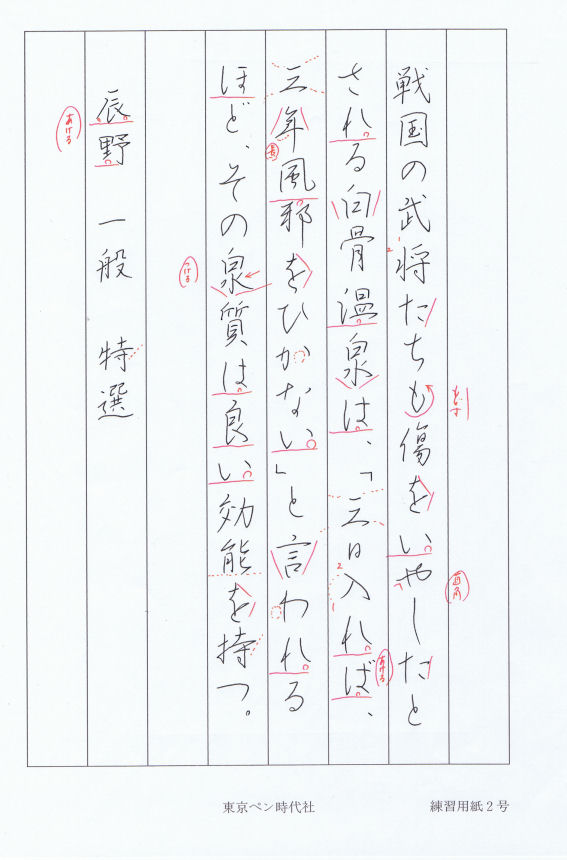 戦国の武将たちも傷をいやしたと
される白骨温泉は、「三日入れば、
三年風邪をひかない」と言われる
ほど、その泉質は良い効能を持つ。
辰野 一般 特選
もどす
直角
あける
長
つける
あける
東京ペン時代社
練習用紙2号